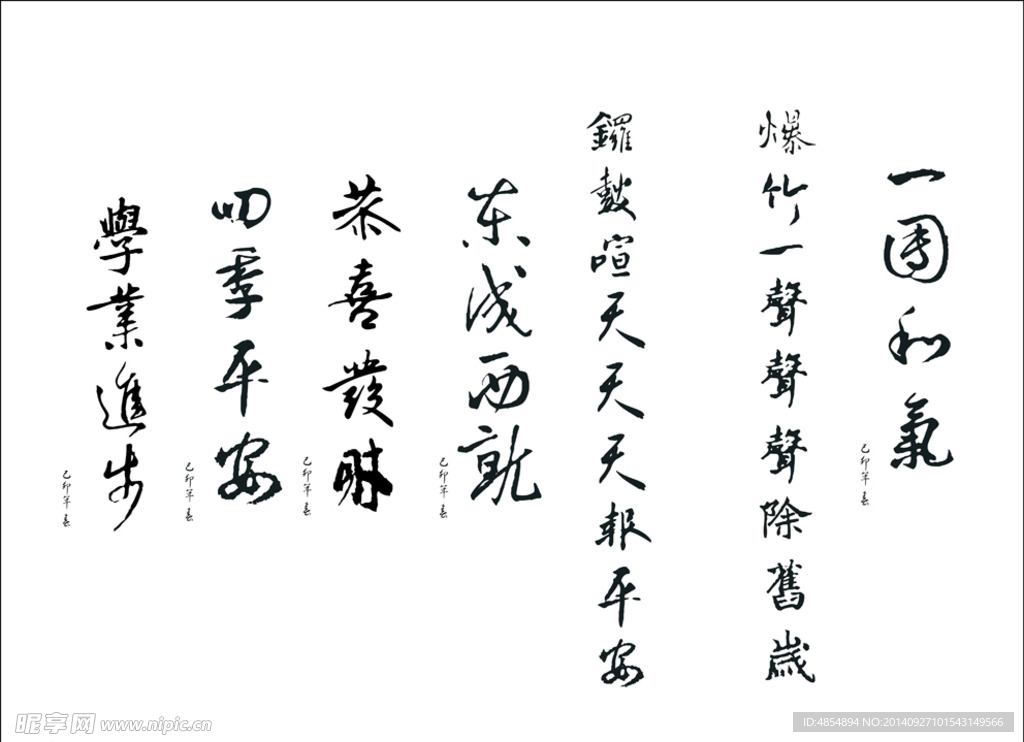 一團和氣
己卯年春
爆竹一聲聲聲除舊歲
鑼鼓喧天天天報平安
東成西就
己卯年春
恭喜發財
己卯年春
四季平安
己卯年春
學業進步
己卯年春
昵享网 www.nipic.cn
ID:4854894 NO:20140927101543149566